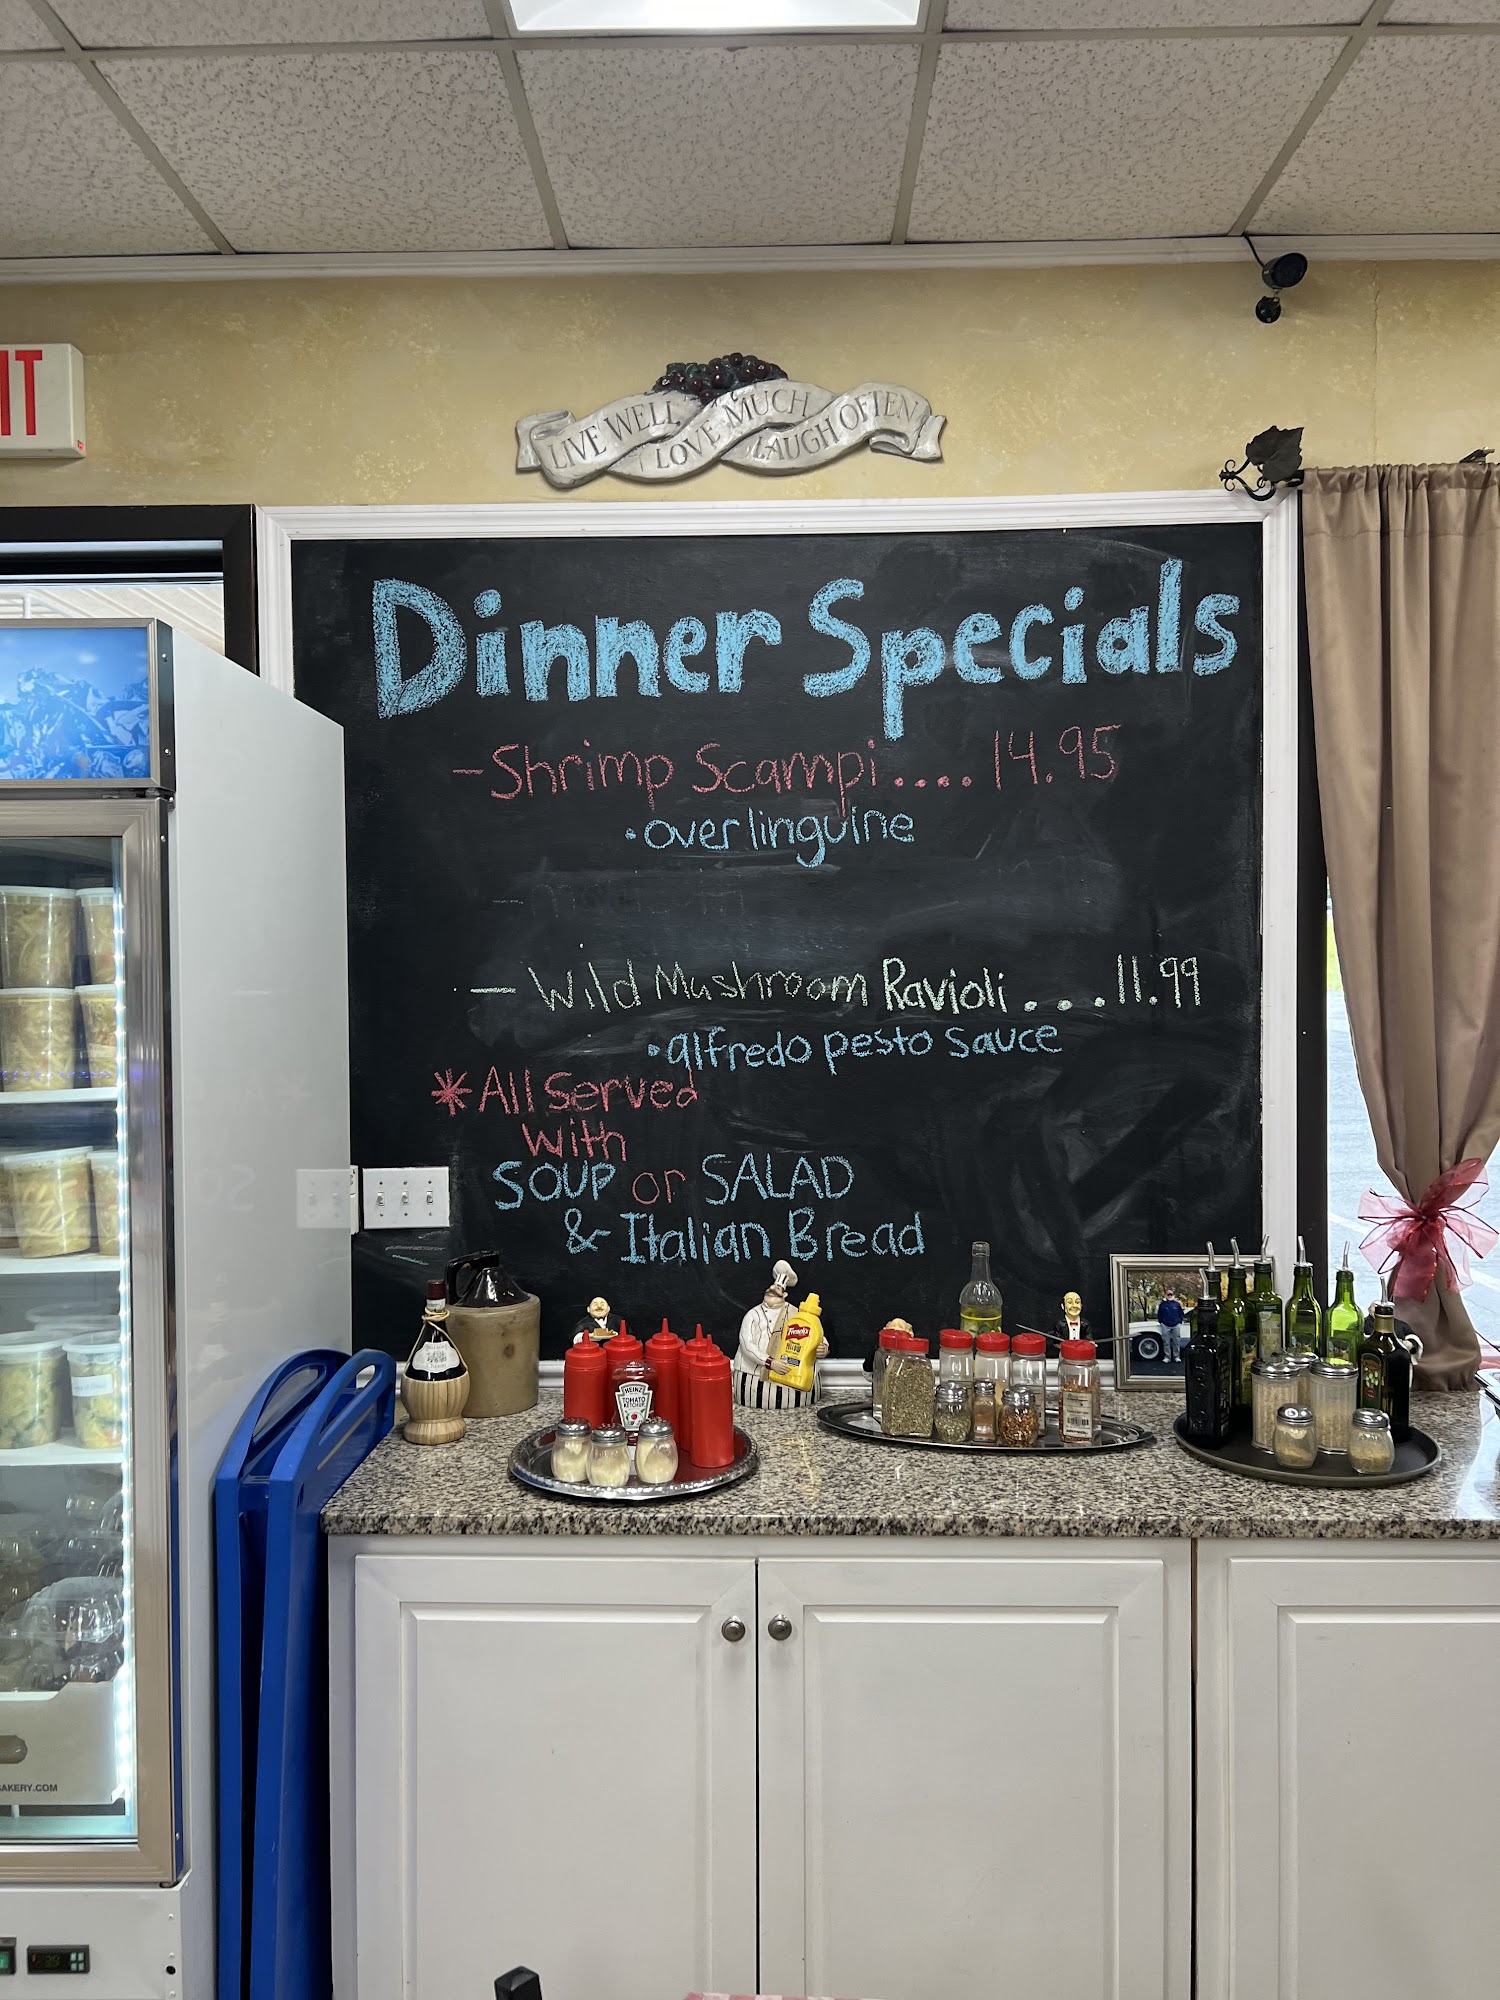 IT
LIVE WELL
LOVE MUCH
LAUGH OFTEN
Dinner Specials
- Shrimp Scampi .... 14.95
• over linguine
- Wild Mushroom Ravioli ... 11.99
• alfredo pesto sauce
* All Served
with
SOUP or SALAD
& Italian Bread
French's
HEINZ
TOMATO
KETCHUP
AKERY.COM